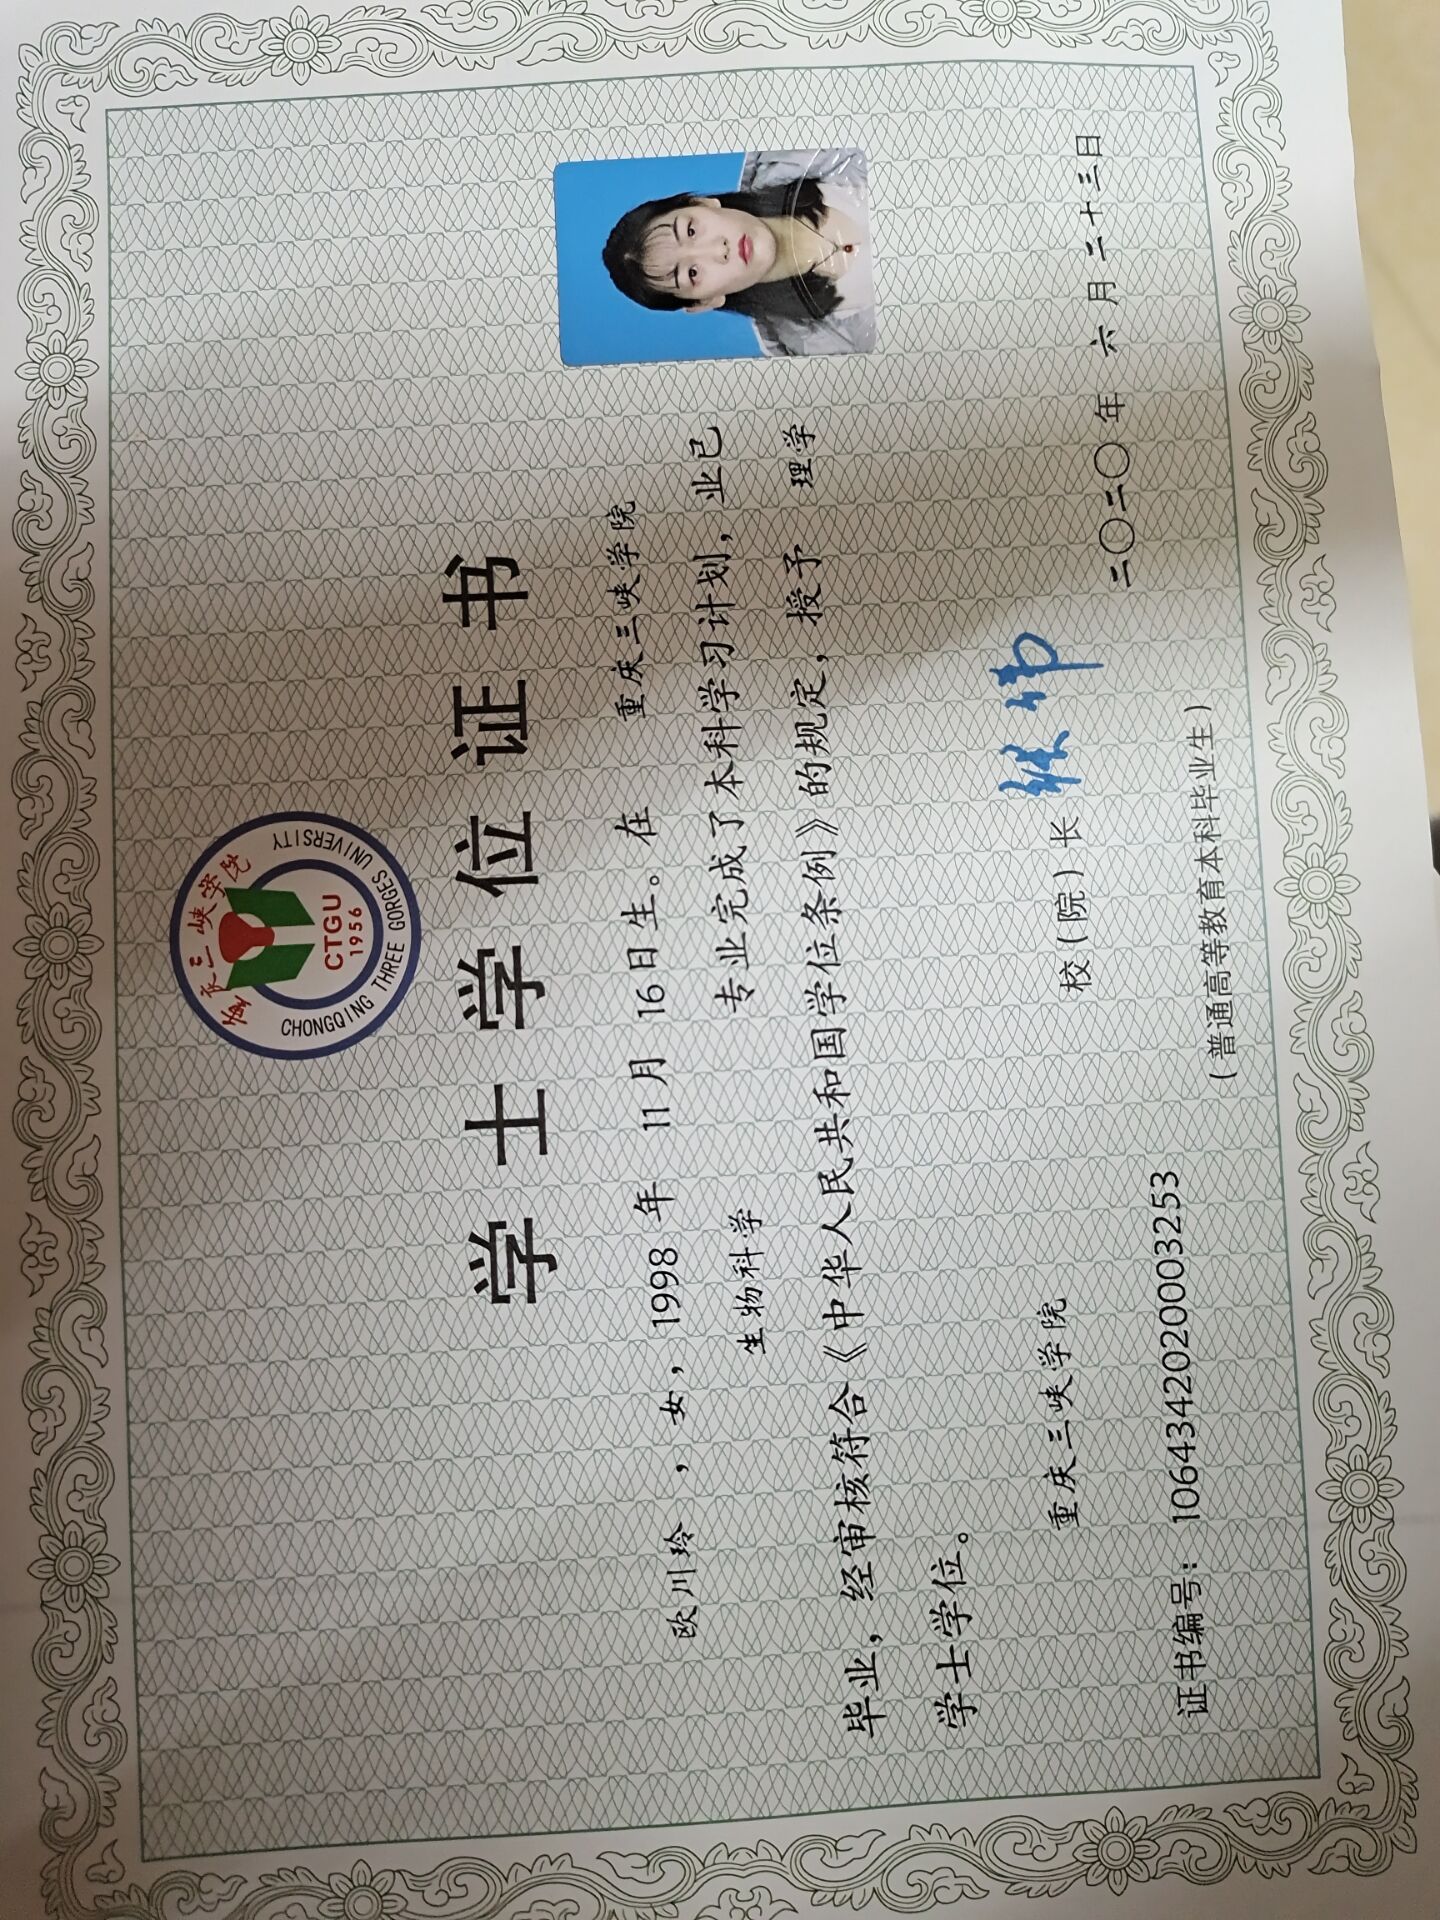 重庆三峡学院
CHONGQING THREE GORGES UNIVERSITY
CTGU
1956
学士学位证书
欧川玲，女，1998年11月16日生。在 重庆三峡学院
生物科学 专业完成了本科学习计划，业已
毕业，经审核符合《中华人民共和国学位条例》的规定，授予 理学
学士学位。
重庆三峡学院 校(院)长
证书编号：1064342020003253 二〇二〇年六月二十三日
(普通高等教育本科毕业生)